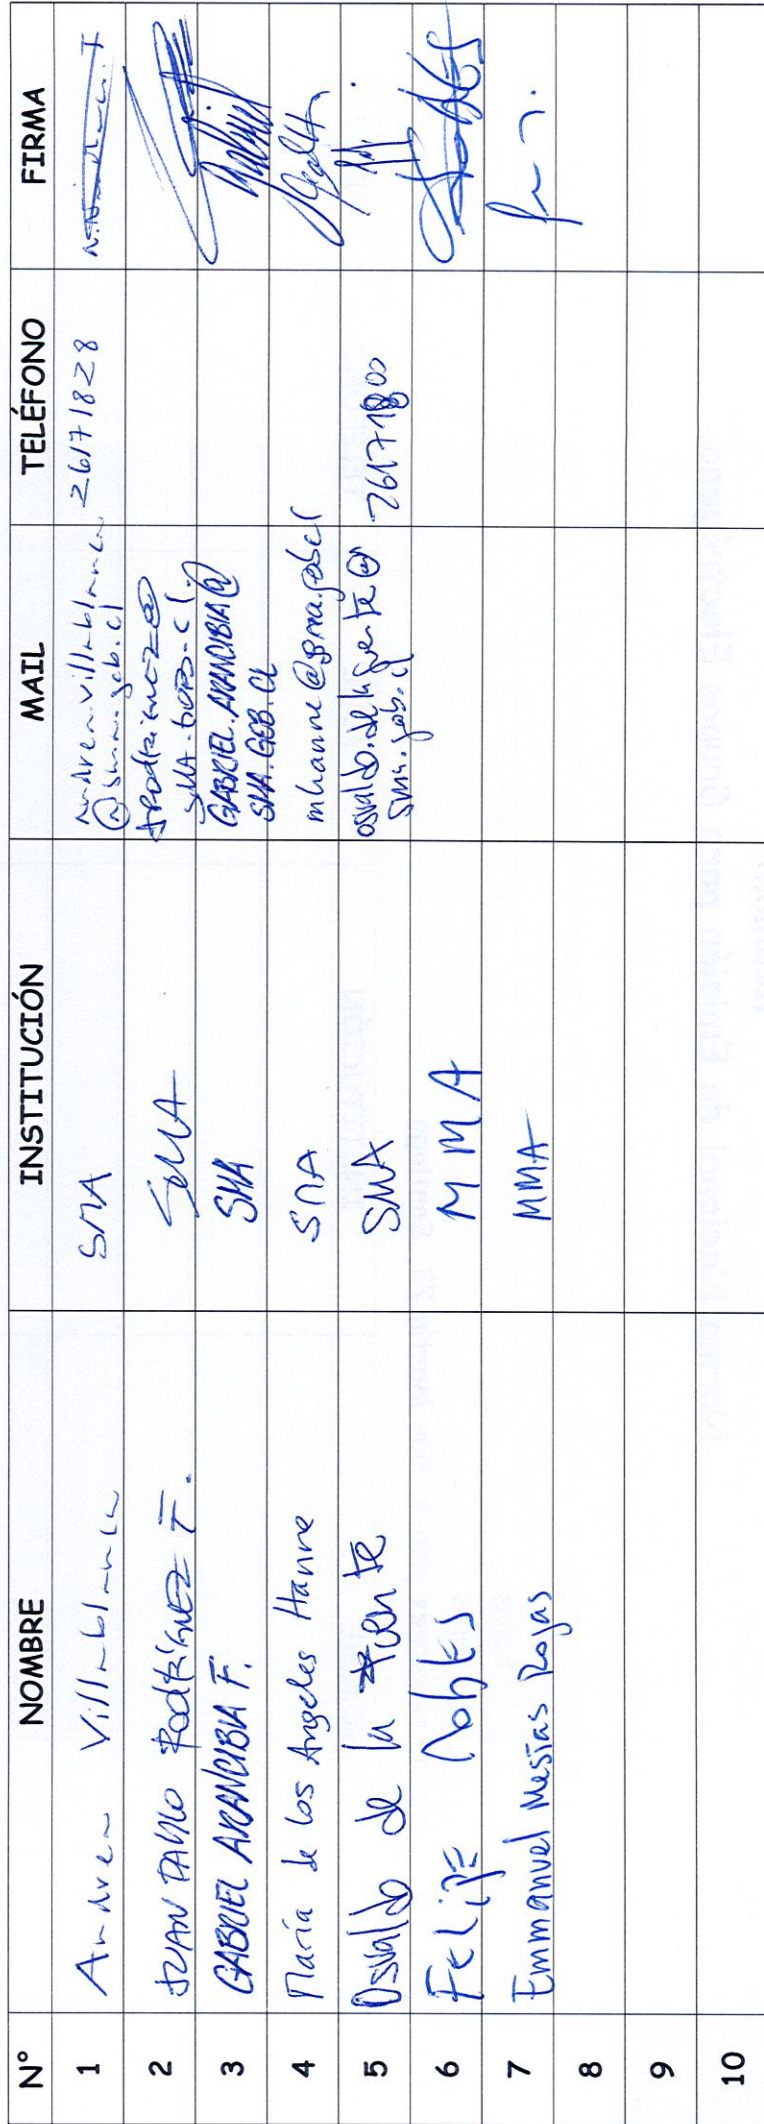 N° NOMBRE INSTITUCIÓN MAIL TELÉFONO FIRMA
1 Andrea Villablanca SMA andrea.villablanca 26171828
@sma.gob.cl
2 JUAN PABLO RODRÍGUEZ F. SMA
SMA.GOB.CL
3 GABRIEL ARANCIBIA F. SMA GABRIEL.ARANCIBIA@
SMA.GOB.CL
4 María de los Angeles Hanne SMA mhanne@sma.gob.cl
5 Osvaldo de la Fuente SMA osvaldo.delafuente@ 26171800
sma.gob.cl
6 Felipe MMA
7 Emmanuel Mesías Rojas MMA
8
9
10